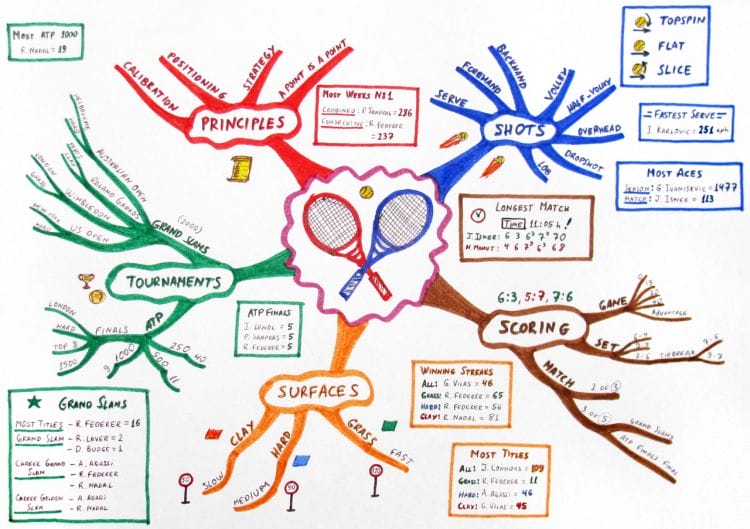 MOST ATP 1000
R. NADAL = 19
PRINCIPLES
CALIBRATION
POSITIONING
STRATEGY
A POINT IS A POINT
MOST WEEKS N:1
COMBINED: P. SAMPRAS = 286
CONSECUTIVE: R. FEDERER
= 237
SHOTS
SERVE
FOREHAND
BACKHAND
VOLLEY
HALF-VOLLEY
OVERHEAD
DROPSHOT
LOB
TOPSPIN
FLAT
SLICE
FASTEST SERVE
I. KARLOVIC = 251 KPH
MOST ACES
SEASON: G. IVANISEVIC = 1477
MATCH: J. ISNER = 113
LONGEST MATCH
TIME 11:05 H!
J. ISNER: 6 3 6⁷ 7⁷ 70
N. MAHUT: 4 6 7⁹ 6³ 68
TOURNAMENTS
GRAND SLAMS
(2000)
AUSTRALIAN OPEN
MELBOURNE
HARD
ROLAND GARROS
PARIS
CLAY
WIMBLEDON
LONDON
GRASS
US OPEN
NEW YORK
HARD
ATP
FINALS
LONDON
HARD
TOP 8
1500
1000
9
500
11
250
40
ATP FINALS
I. LENDL = 5
P. SAMPRAS = 5
R. FEDERER = 5
GRAND SLAMS
MOST TITLES - R. FEDERER = 16
GRAND SLAM - R. LAVER = 2
- D. BUDGE = 1
CAREER GRAND SLAM - A. AGASSI
- R. FEDERER
- R. NADAL
CAREER GOLDEN SLAM - A. AGASI
- R. NADAL
SURFACES
CLAY
SLOW
HARD
MEDIUM
GRASS
FAST
WINNING STREAKS
ALL: G. VILAS = 46
GRASS: R. FEDERER = 65
HARD: R. FEDERER = 56
CLAY: R. NADAL = 81
MOST TITLES
ALL: J. CONNORS = 109
GRASS: R. FEDERER = 11
HARD: A. AGASSI = 46
CLAY: G. VILAS = 45
6:3, 5:7, 7:6
SCORING
GAME
ADVANTAGE
SET
6-4
7-6
TIEBREAK
7-5
9-7
MATCH
2 OF 3
3 OF 5
GRAND SLAMS
ATP FINALS FINAL